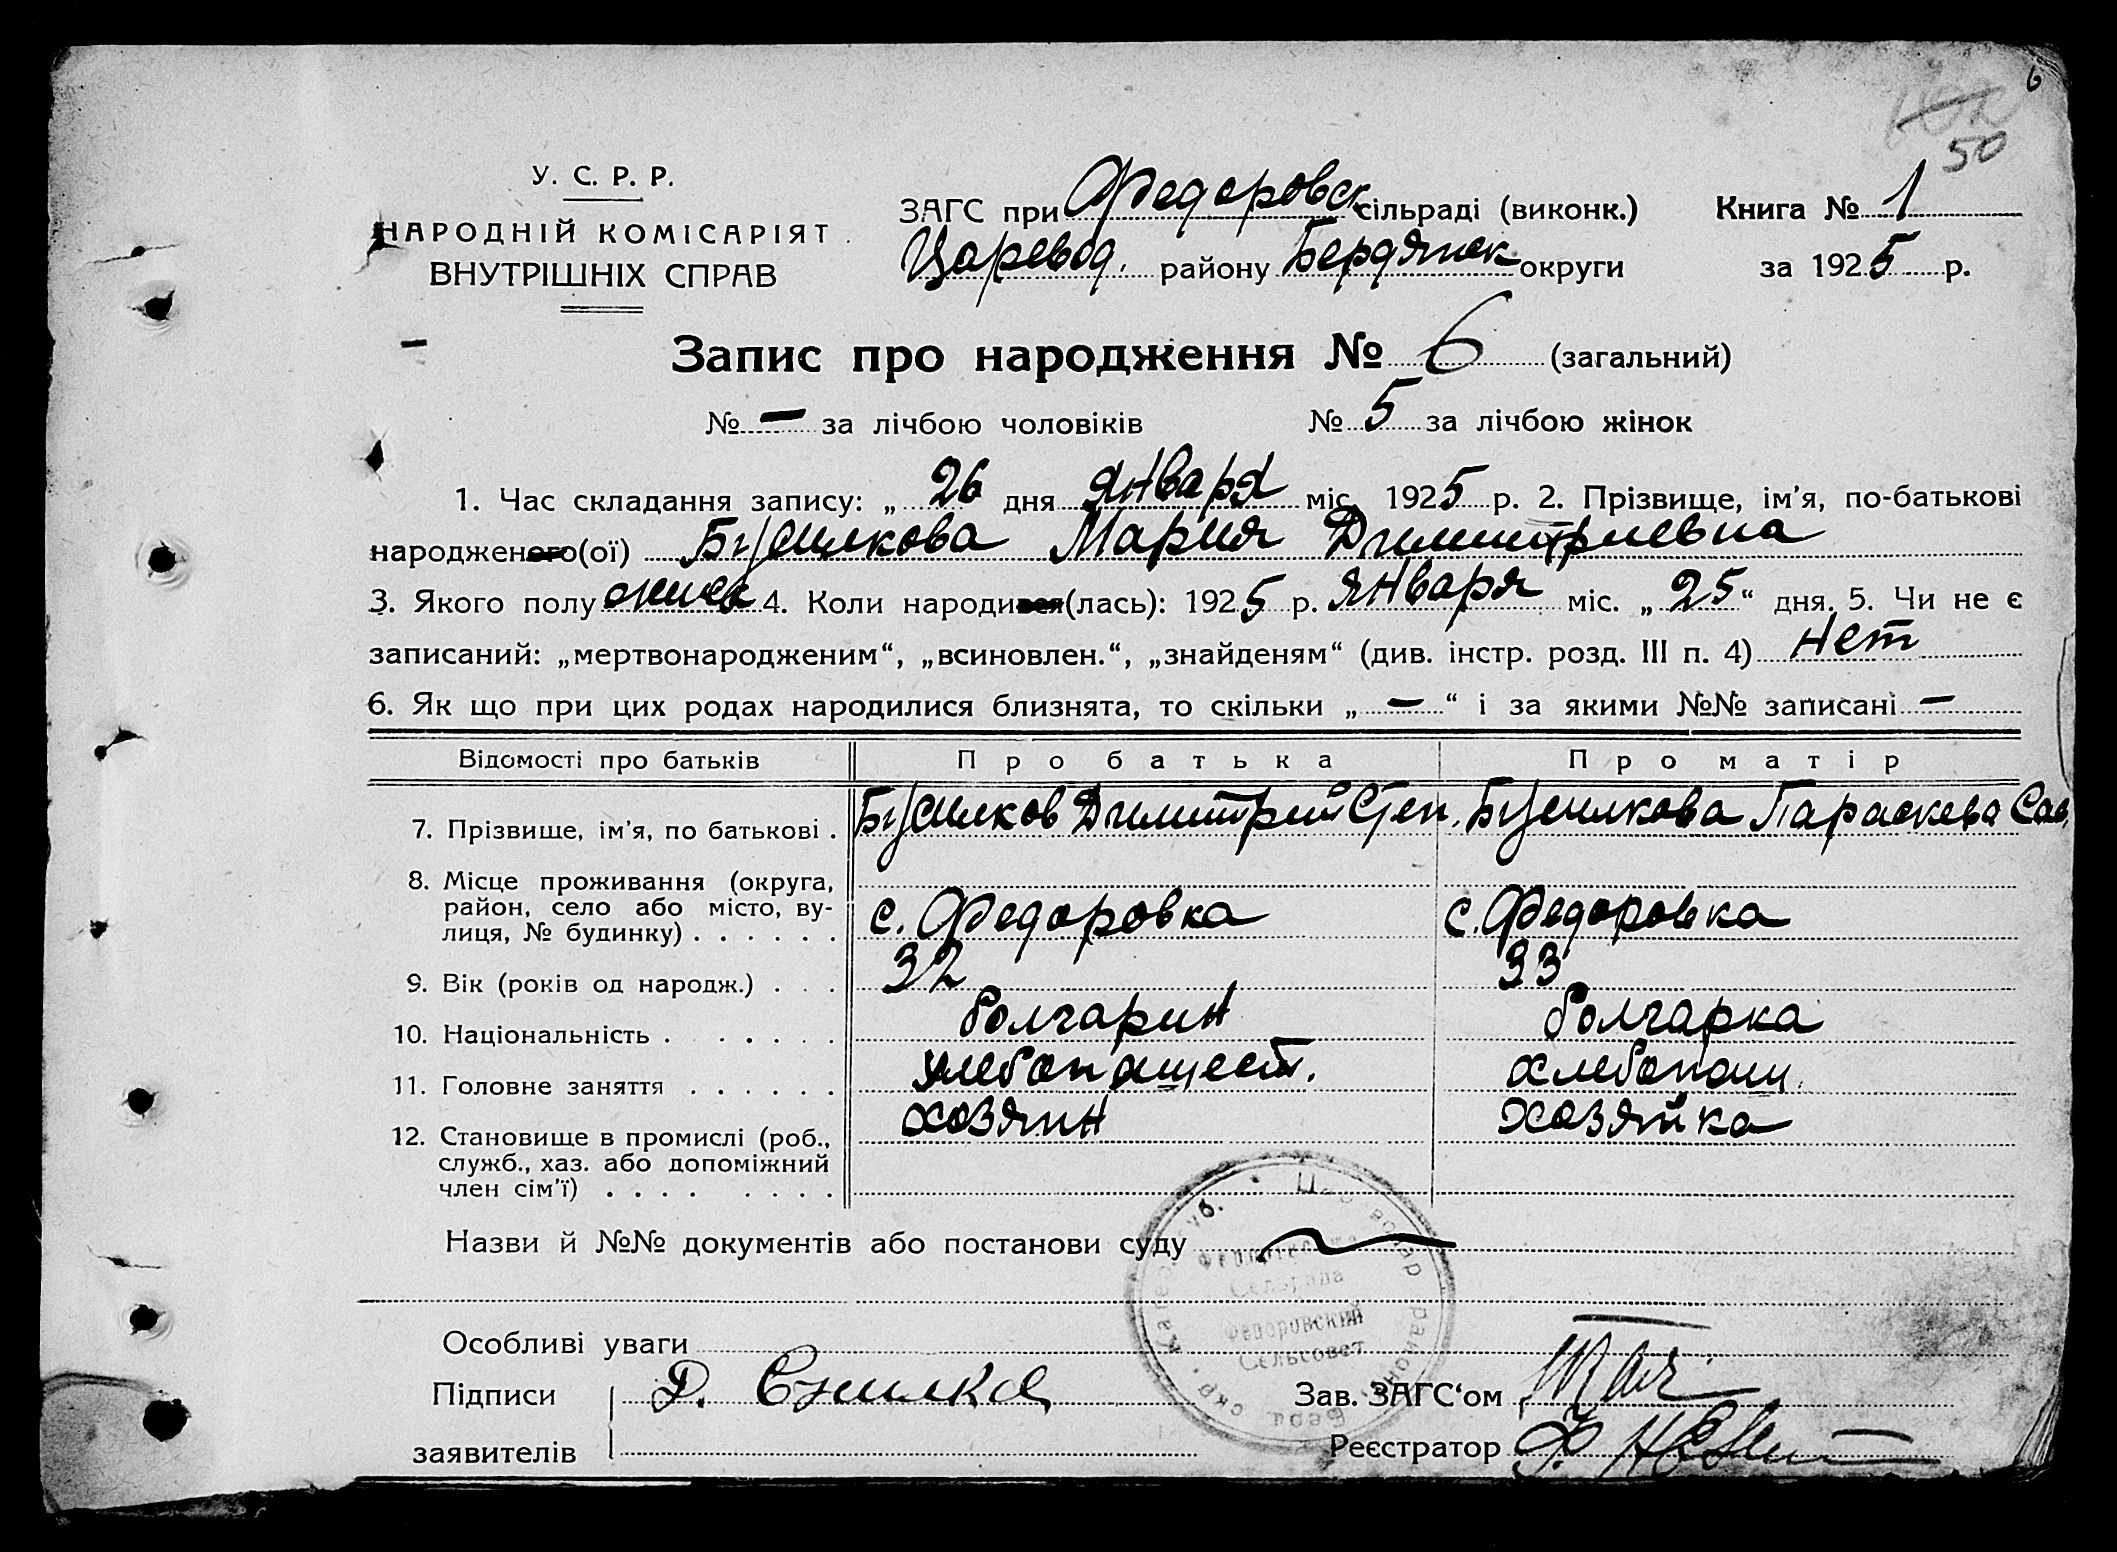 6
50
У. С. Р. Р.
НАРОДНІЙ КОМІСАРІЯТ
ВНУТРІШНІХ СПРАВ
ЗАГС при Федоровск сільраді (виконк.) Книга № 1
Царевод. району Бердянск округи за 1925 р.
Запис про народження № 6 (загальний)
№ – за лічбою чоловіків № 5 за лічбою жінок
1. Час складання запису: „ 26 дня января міс. 1925 р. 2. Прізвище, ім'я, по-батькові
народженого(ої) Бусилкова Мария Димитриевна
3. Якого полу женск 4. Коли народився(лась): 1925 р. января міс. „ 25 “ дня. 5. Чи не є
записаний: „мертвонародженим“, „всиновлен.“, „знайденям“ (див. інстр. розд. III п. 4) нет
6. Як що при цих родах народилися близнята, то скільки „ – “ і за якими №№ записані –
Відомості про батьків Про батька Про матір
7. Прізвище, ім'я, по батькові . Бусилков Димитрий Степ. Бусилкова Параскева Сав.
8. Місце проживання (округа,
район, село або місто, ву-
лиця, № будинку) . . . . . . с. Федоровка с. Федоровка
9. Вік (років од народж.) . . . 32 33
10. Національність . . . . . . болгарин болгарка
11. Головне заняття . . . . . . хлебопашест. хлебопаш.
12. Становище в промислі (роб.,
служб., хаз. або допоміжний
член сім'ї) . . . . . . . . хозяин хозяйка
Назви й №№ документів або постанови суду
Федоровский
Сельсовет
Особливі уваги
Підписи Д. Зав. ЗАГС'ом
заявителів Реєстратор